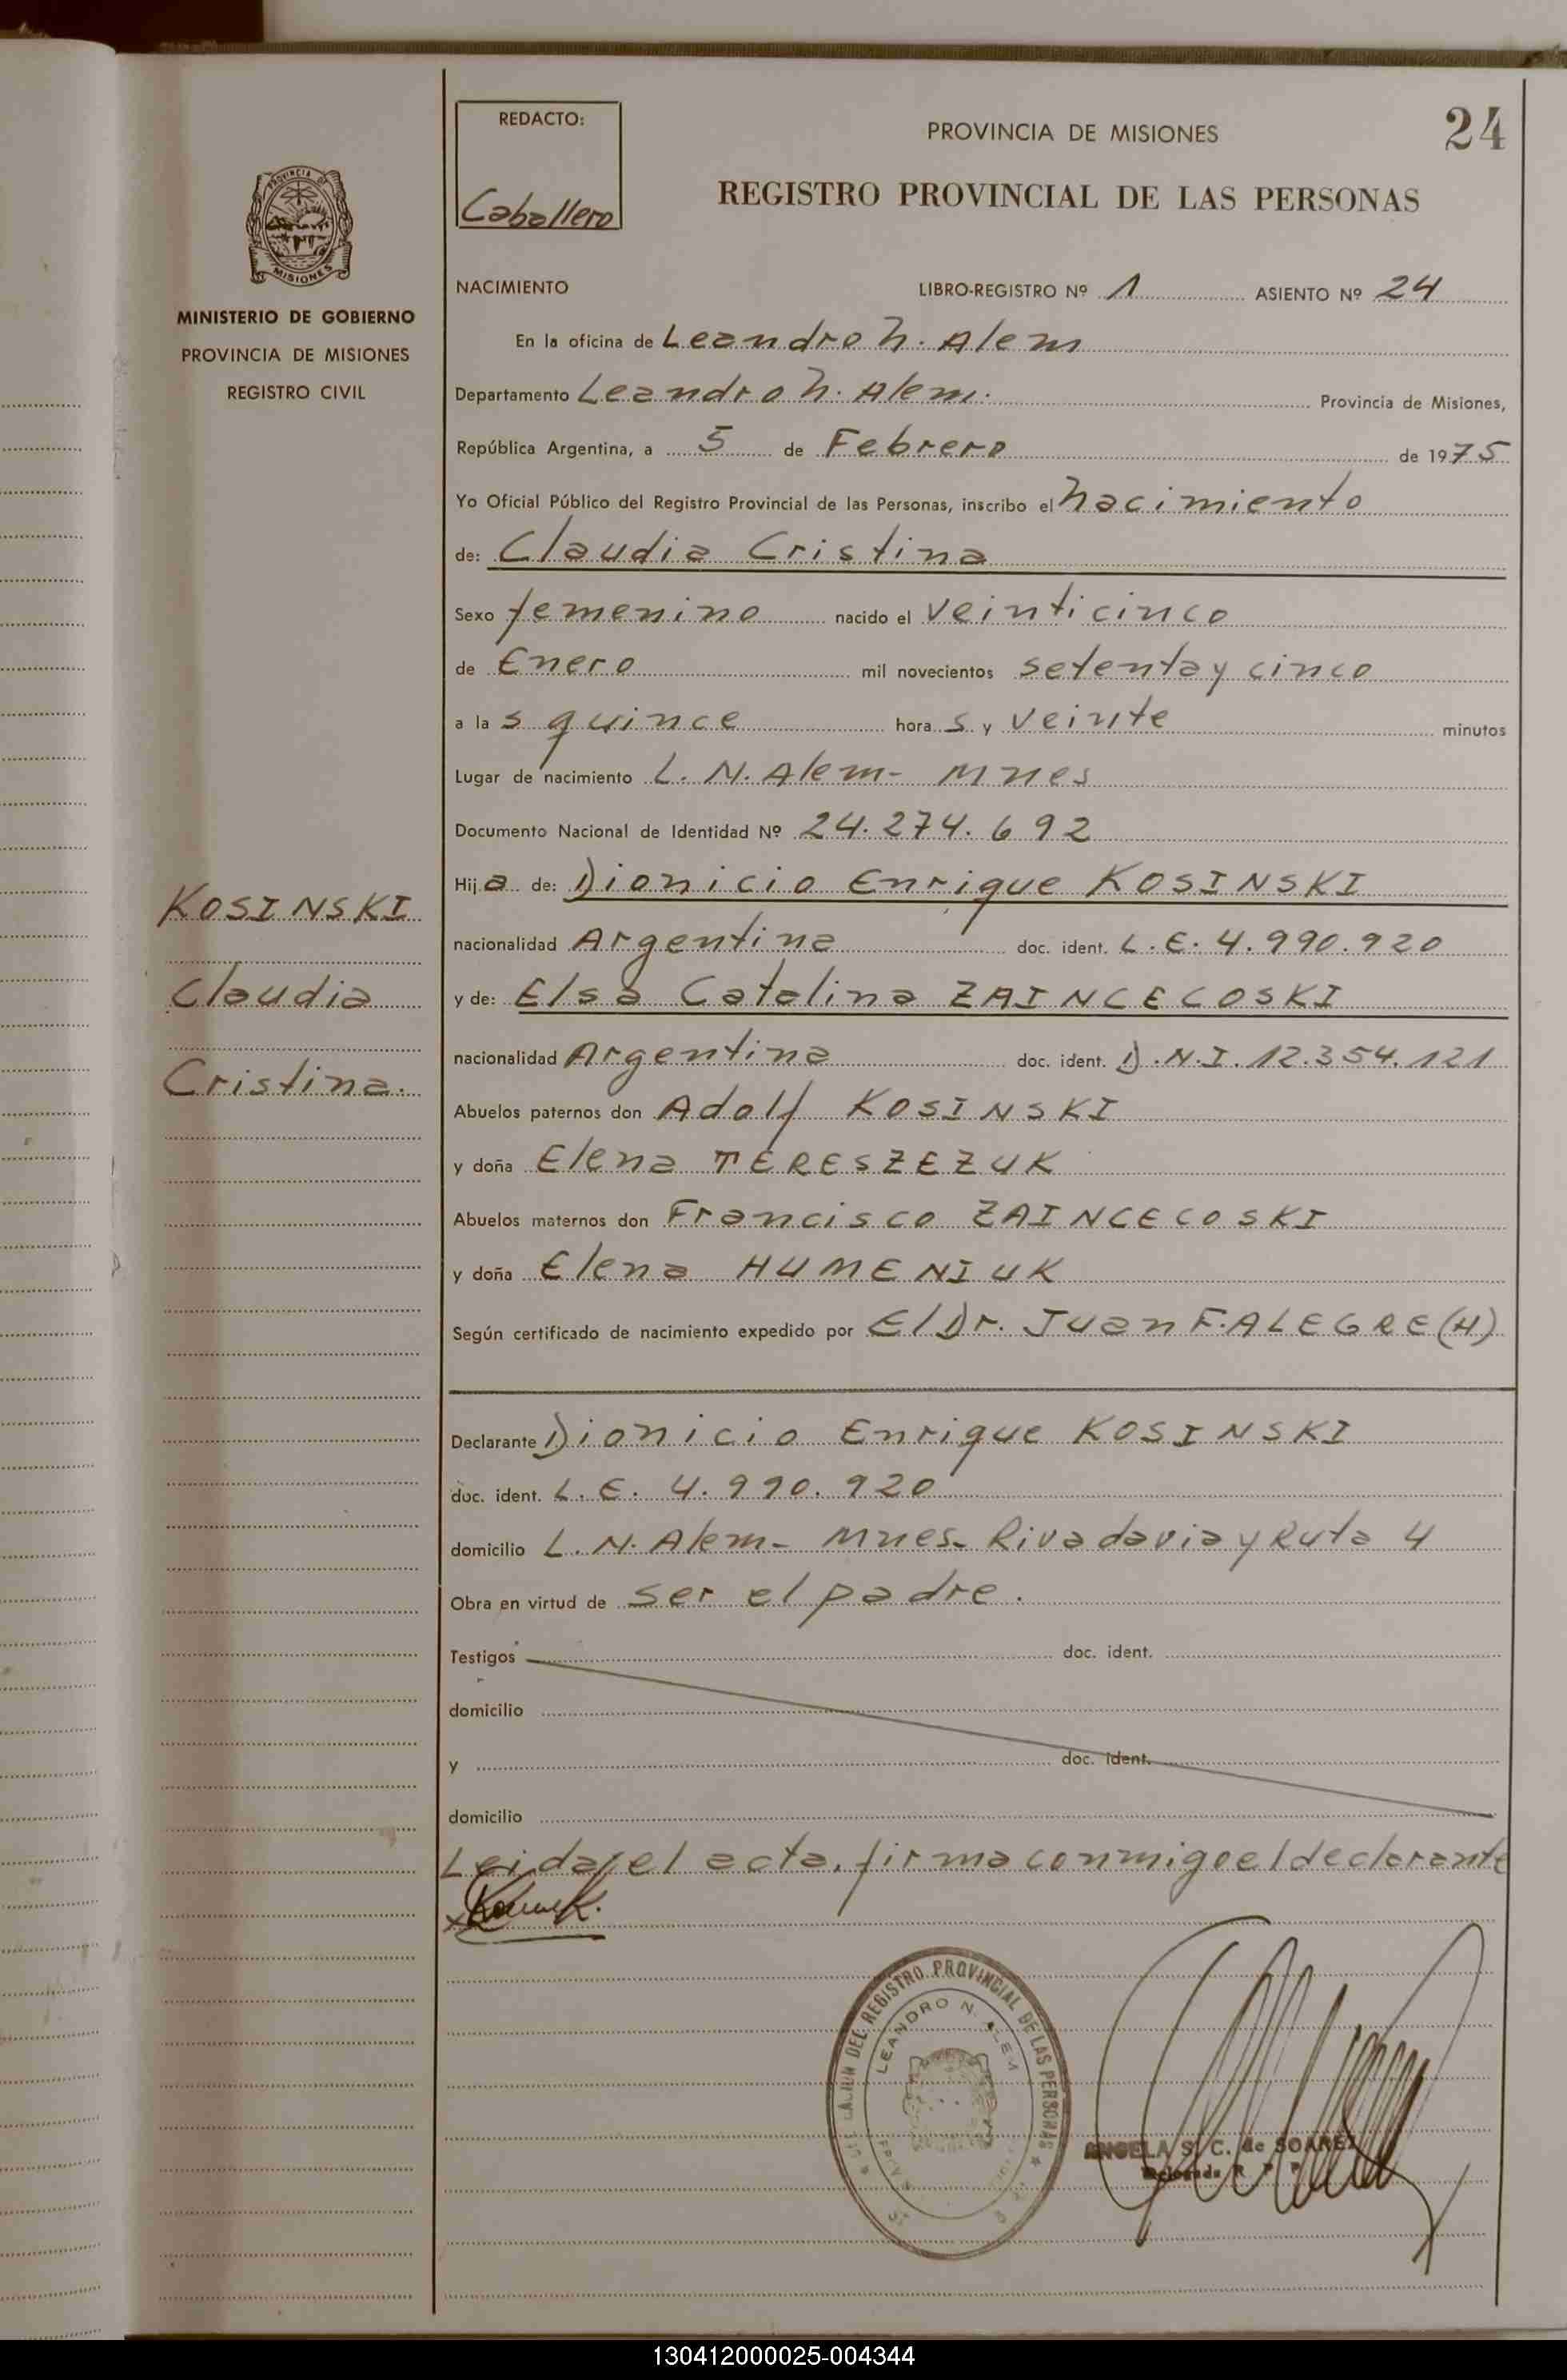 REDACTO:
Caballero
PROVINCIA DE MISIONES
24
REGISTRO PROVINCIAL DE LAS PERSONAS
PROVINCIA DE
MISIONES
MINISTERIO DE GOBIERNO
PROVINCIA DE MISIONES
REGISTRO CIVIL
KOSINSKI
Claudia
Cristina.
NACIMIENTO LIBRO-REGISTRO Nº 1 ASIENTO Nº 24
En la oficina de Leandro N. Alem
Departamento Leandro N. Alem. Provincia de Misiones,
República Argentina, a 5 de Febrero de 1975
Yo Oficial Público del Registro Provincial de las Personas, inscribo el Nacimiento
de: Claudia Cristina
Sexo femenino nacido el veinticinco
de Enero mil novecientos setenta y cinco
a las quince horas y veinte minutos
Lugar de nacimiento L. N. Alem- Mnes
Documento Nacional de Identidad Nº 24.274.692
Hija de: Dionicio Enrique KOSINSKI
nacionalidad Argentina doc. ident. L.E. 4.990.920
y de: Elsa Catalina ZAINCECOSKI
nacionalidad Argentina doc. ident. D.N.I. 12.354.121
Abuelos paternos don Adolf KOSINSKI
y doña Elena TERESZEZUK
Abuelos maternos don Francisco ZAINCECOSKI
y doña Elena HUMENIUK
Según certificado de nacimiento expedido por El Dr. Juan F. ALEGRE (H)
Declarante Dionicio Enrique KOSINSKI
doc. ident. L.E. 4.990.920
domicilio L. N. Alem- Mnes- Rivadavia y Ruta 4
Obra en virtud de ser el padre.
Testigos doc. ident.
domicilio
y doc. ident.
domicilio
Leida el acta, firma conmigo el declarante
DEL REGISTRO PROVINCIAL DE LAS PERSONAS
LEANDRO N. ALEM
ANGELA S. C. de SOAREZ
Delegada R P P
130412000025-004344